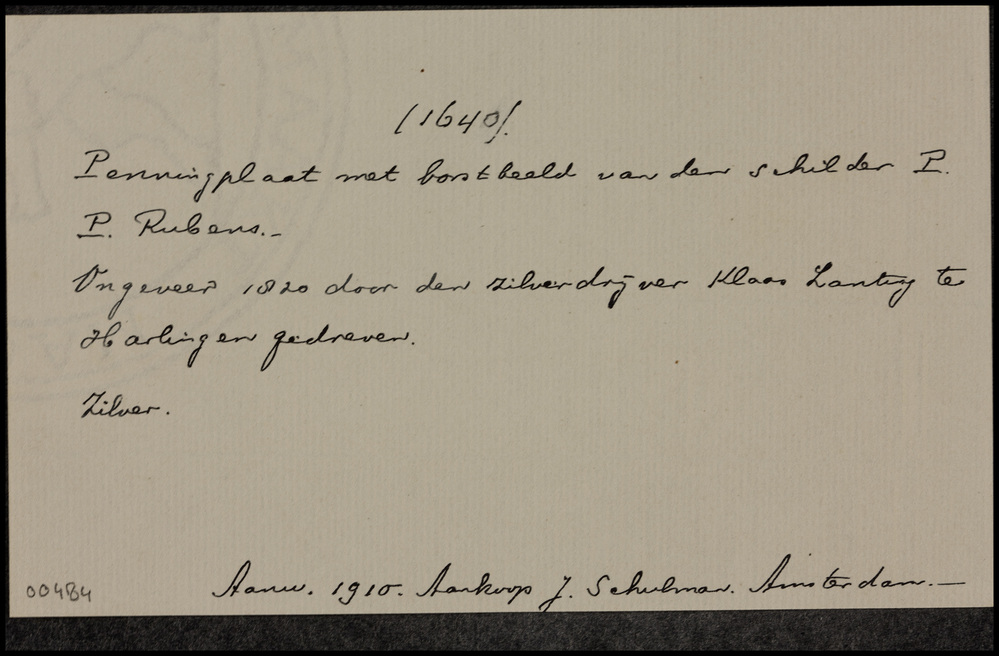 (1640).
Penningplaat met borstbeeld van den schilder P.
P. Rubens.-
Ongeveer 1820 door den zilverdrijver Klaas Lanting te
Harlingen gedreven.
Zilver.
00484
Aanw. 1910. Aankoop J. Schulman. Amsterdam.—